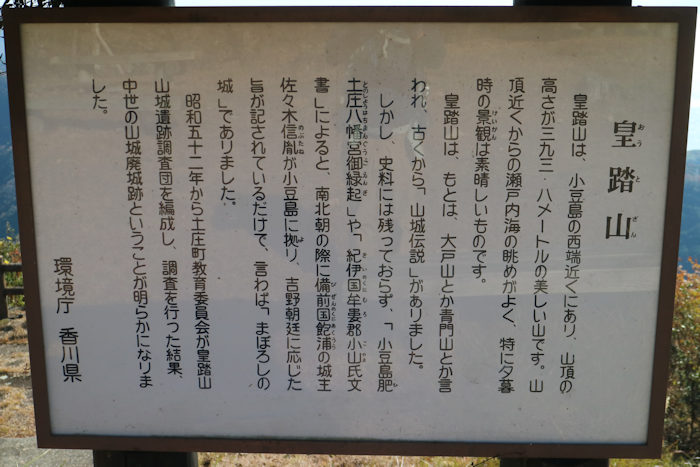 皇踏山
おうとざん
皇踏山は、小豆島の西端近くにあり、山頂の
高さが三九三・八メートルの美しい山です。山
頂近くからの瀬戸内海の眺めがよく、特に夕暮
時の景観は素晴しいものです。
けいかん
皇踏山は、もとは、大戸山とか青門山とか言
われ、古くから「山城伝説」がありました。
しかし、史料には残っておらず、「小豆島肥
土庄八幡宮御縁起」や「紀伊国牟婁郡小山氏文
書」によると、南北朝の際に備前国飽浦の城主
佐々木信胤が小豆島に拠り、吉野朝廷に応じた
のぶたね
よ
旨が記されているだけで、言わば「まぼろしの
城」でありました。
昭和五十二年から土庄町教育委員会が皇踏山
山城遺跡調査団を編成し、調査を行った結果、
中世の山城廃城跡ということが明らかになりま
した。
環境庁 香川県